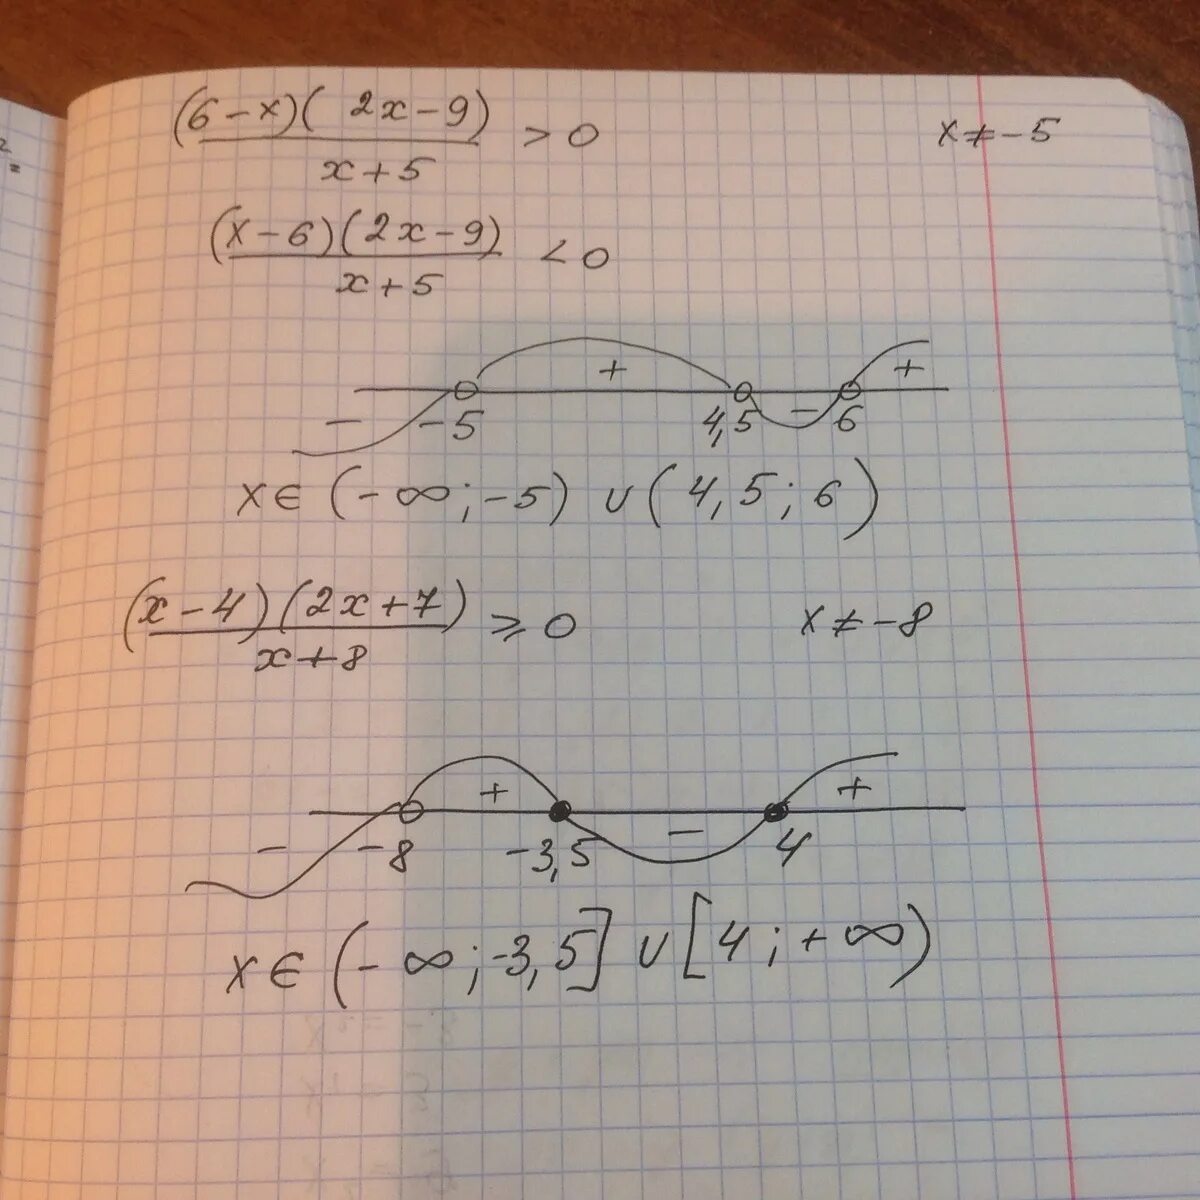 (6-x)(2x-9)/x+5 > 0 x≠-5
(x-6)(2x-9)/x+5 < 0
+ +
- -5 4,5 - 6
x∈(-∞;-5)∪(4,5;6)
(x-4)(2x+7)/x+8 ≥ 0 x≠-8
+ +
- -8 -3,5 - 4
x∈(-∞;-3,5]∪[4;+∞)